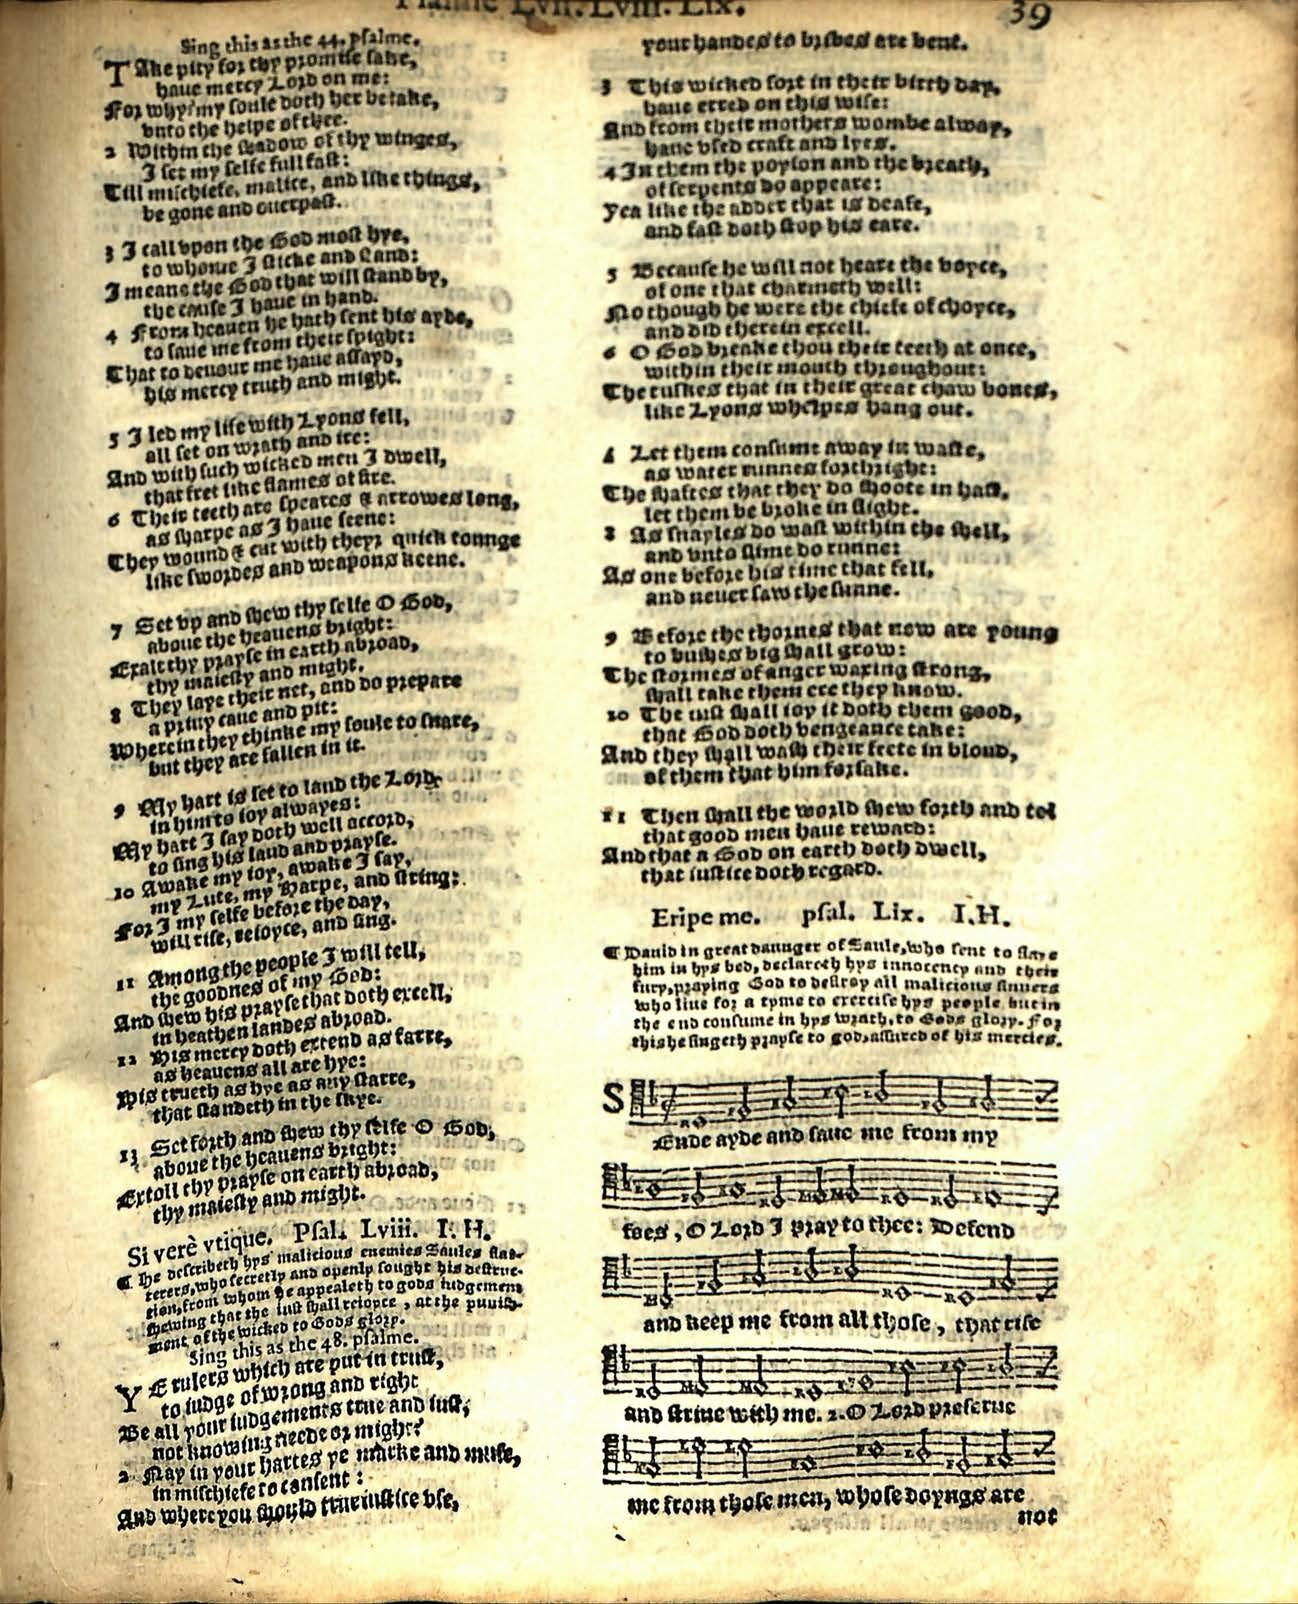 Psalme LVII. LVIII. LIX. 39
Sing this as the 44. psalme.
TAke pity for thy promise sake,
haue mercy Lord on me:
For why? my soule doth her betake,
vnto the helpe of thee.
2 Within the shadow of thy winges,
I set my selfe full fast:
Till mischiefe, malice, and like things,
be gone and ouerpast.
3 I call vpon the God most hye,
to whome I sticke and stand:
I meane the God that will stand by,
the cause I haue in hand.
4 From heauen he hath sent his ayde,
to saue me from their spight:
That to deuour me haue assayd,
his mercy truth and might.
5 I led my life with Lyons fell,
all set on wrath and ire:
And with such wicked men I dwell,
that fret like flames of fire.
6 Their teeth are speares & arrowes long,
as sharpe as I haue seene:
They wound & cut with theyr quick tounge
like swordes and weapons keene.
7 Set vp and shew thy selfe O God,
aboue the heauens bright:
Exalt thy prayse in earth abroad,
thy maiesty and might.
8 They laye their net, and do prepare
a priuy caue and pit:
Wherein they thinke my soule to snare,
but they are fallen in it.
9 My hart is set to laud the Lord,
in him to ioy alwayes:
My hart I say doth well accord,
to sing his laud and prayse.
10 Awake my ioy, awake I say,
my Lute, my Harpe, and string:
For I my selfe before the day,
will rise, reioyce, and sing.
11 Among the people I will tell,
the goodnes of my God:
And shew his prayse that doth excell,
in heathen landes abroad.
12 His mercy doth extend as farre,
as heauens all are hye:
His trueth as hye as any starre,
that standeth in the skye.
13 Set forth and shew thy selfe O God,
aboue the heauens bright:
Extoll thy prayse on earth abroad,
thy maiesty and might.
Si verè vtique. Psal. Lviii. I. H.
¶ He describeth hys malicious enemies Saules flat-
terers, who secretly and openly sought his destruc-
tion, from whom he appealeth to gods iudgement
shewing that the iust shall reioyce, at the punish-
ment of the wicked to Gods glory.
Sing this as the 48. psalme.
YE rulers which are put in trust,
to iudge of wrong and right
Be all your iudgements true and iust,
not knowing neede or might?
2 Nay in your hartes ye marke and muse,
in mischiefe to consent:
And where you should true iustice vse,
your handes to bribes are bent.
3 This wicked sort in their birth day,
haue erred on this wise:
And from their mothers wombe alway,
haue vsed craft and lyes.
4 In them the poyson and the breath,
of serpents do appeare:
Yea like the adder that is deafe,
and fast doth stop his eare.
5 Because he will not heare the voyce,
of one that charmeth well:
No though he were the chiefe of choyce,
and did therein excell.
6 O God breake thou their teeth at once,
within their mouth throughout:
The tuskes that in their great chaw bones,
like Lyons whelpes hang out.
7 Let them consume away in waste,
as water runnes forthright:
The shaftes that they do shoote in hast,
let them be broke in flight.
8 As snayles do wast within the shell,
and vnto slime do runne:
As one before his time that fell,
and neuer saw the sunne.
9 Before the thornes that now are young
to bushes big shall grow:
The stormes of anger waxing strong,
shall take them ere they know.
10 The iust shall ioy it doth them good,
that God doth vengeance take:
And they shall wash their feete in bloud,
of them that him forsake.
11 Then shall the world shew forth and tel
that good men haue reward:
And that a God on earth doth dwell,
that iustice doth regard.
Eripe me. psal. Lix. I. H.
¶ Dauid in great daunger of Saule, who sent to slaye
him in hys bed, declareth hys innocency and their
fury, praying God to destroy all malicious sinners
who liue for a tyme to exercise hys people but in
the end consume in hys wrath, to Gods glory. For
this he singeth prayse to god, assured of his mercies.
SEnde ayde and saue me from my
foes, O Lord I pray to thee: Defend
and keep me from all those, that rise
and striue with me. 2. O Lord preserue
me from those men, whose doyngs are
not